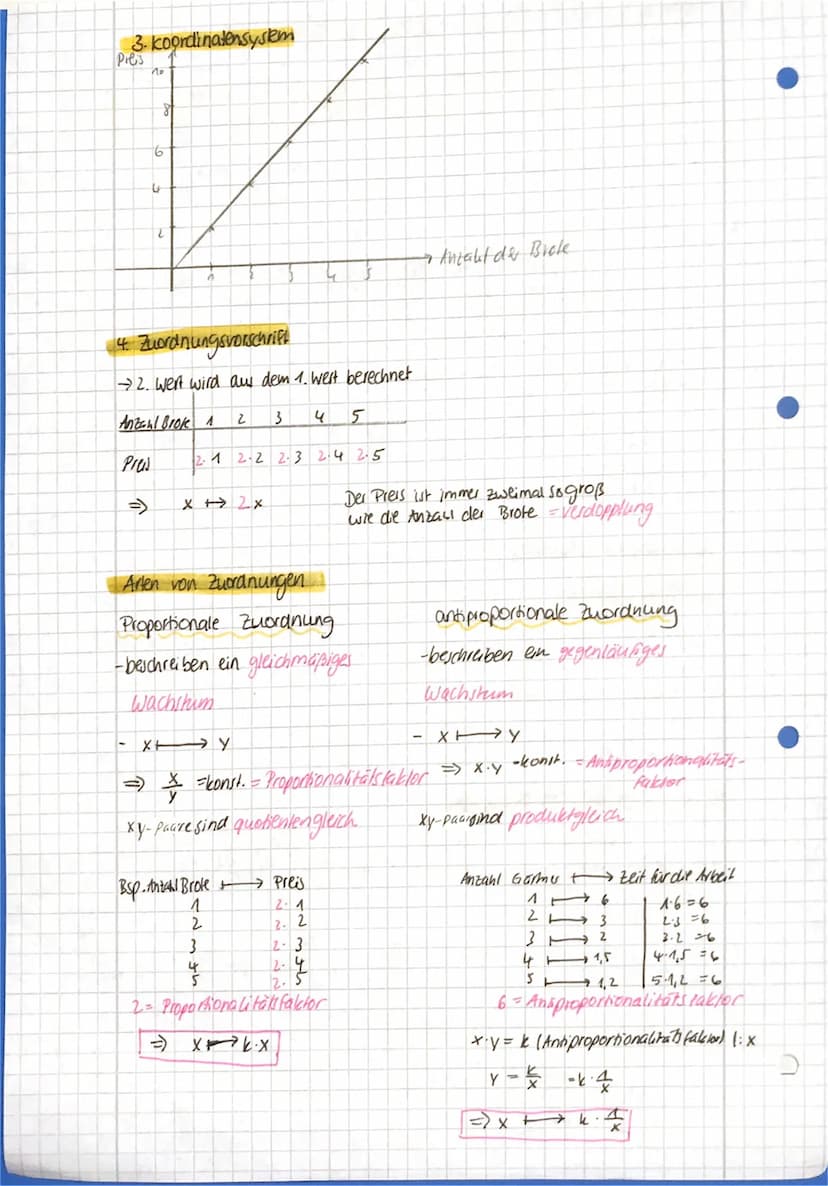 3. Koordinatensystem
Preis
10
8
6
4
2
1 2 3 4 5
Anzahl der Brote
4. Zuordnungsvorschrift
→ 2. Wert wird aus dem 1. Wert berechnet
Anzahl Brote 1 2 3 4 5
Preis 2·1 2·2 2·3 2·4 2·5
⇒ x ↦ 2x
Der Preis ist immer zweimal so groß
wie die Anzahl der Brote = Verdopplung
Arten von Zuordnungen
Proportionale Zuordnung
- beschreiben ein gleichmäßiges
Wachstum
- x ↦ y
⇒ x/y = konst. = Proportionalitätsfaktor
xy-Paare sind quotientengleich
Bsp. Anzahl Brote ↦ Preis
1 2·1
2 2·2
3 2·3
4 2·4
5 2·5
2 = Proportionalitätsfaktor
⇒ x ↦ k·x
antiproportionale Zuordnung
- beschreiben ein gegenläufiges
Wachstum
- x ↦ y
⇒ x·y = konst. = Antiproportionalitäts-
faktor
xy-Paar sind produktgleich
Anzahl Gärtner ↦ Zeit für die Arbeit
1 ↦ 6 | 1·6 = 6
2 ↦ 3 | 2·3 = 6
3 ↦ 2 | 3·2 = 6
4 ↦ 1,5 | 4·1,5 = 6
5 ↦ 1,2 | 5·1,2 = 6
6 = Anproportionalitätsfaktor
x·y = k (Antiproportionalitätsfaktor) |:x
y = k/x = k·1/x
⇒ x ↦ k·1/x